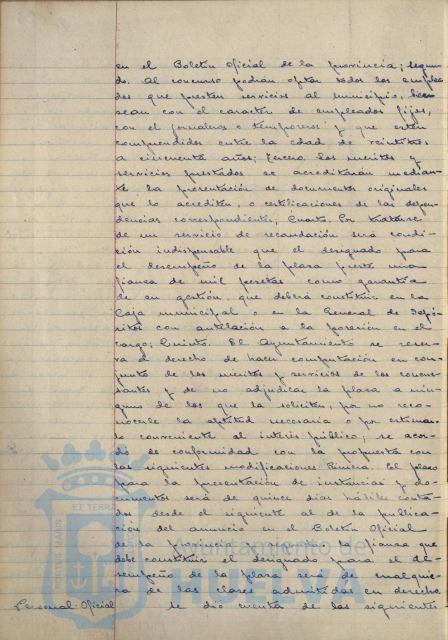 en el Boletin Oficial de la provincia; segun-
do. Al concurso podrán optar todos los emplea-
dos que presten servicios al municipio, bien
sean con el caracter de empleados fijos,
con el jornaleros o temporeros y que esten
comprendidos entre la edad de veintitres
a cincuenta años; Tercero. los meritos y
servicios prestados se acreditarán median-
te la presentación de documentos originales
que lo acrediten, o certificaciones de las depen-
dencias correspondientes; Cuarto. Por tratarse
de un servicio de recaudación será condi-
ción indispensable que el designado para
el desempeño de la plaza preste una
fianza de mil pesetas como garantia
de su gestión, que deberá constituir en la
Caja municipal o en la General de Depó-
sitos con antelación a la posesión en el
cargo; Quinto. El Ayuntamiento se reser-
va el derecho de hacer computación en con-
junto de los meritos y servicios de los concur-
santes y de no adjudicar la plaza a nin-
guno de los que la soliciten, por no reco-
nocerle la aptitud necesaria o por estimar-
lo conveniente al interés público; se acor-
dó de conformidad con la propuesta con
las siguientes modificaciones. Primera. El plazo
para la presentación de instancias y do-
cumentos será de quince dias hábiles conta-
dos desde el siguiente al de la publica-
ción del anuncio en el Boletin Oficial
de la provincia y segunda, la fianza que
debe constituir el designado para el de-
sempeño de la plaza será de cualquie-
ra de las clases admitidas en derecho
Personal-Oficial se dio cuenta de las siguientes
ET TERRAE
PORTUS MARIS
Ayuntamiento de
HUELVA